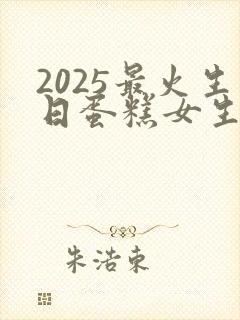 2025最火生
日蛋糕女生
朱浩东